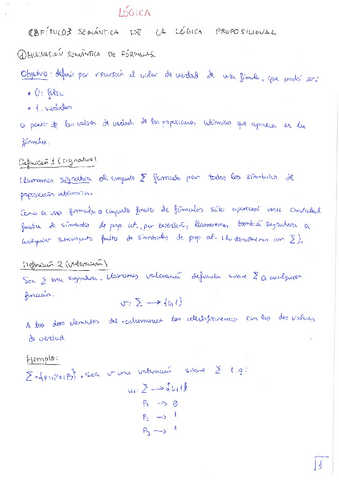 LÓGICA
CAPÍTULO 3 SEMÁNTICA DE LA LÓGICA PROPOSICIONAL
① EVALUACIÓN SEMÁNTICA DE FÓRMULAS.
Objetivo: definir por recursión el valor de verdad de una fórmula, que podrá ser:
• 0: falso
• 1: verdadero
a partir de los valores de verdad de las proposiciones atómicas que aparecen en la
fórmula.
Definición 1 (signatura)
Llamamos signatura al conjunto Σ formado por todos los símbolos de
proposición atómica.
Como en una fórmula o conjunto finito de fórmulas sólo aparece una cantidad
finita de símbolos de prop at., por extensión, llamaremos también signatura a
cualquier subconjunto finito de símbolos de prop at. (lo denotaremos con Σ).
Definición 2 (valoración)
Sea Σ una signatura. Llamamos valoración definida sobre Σ a cualquier
función.
v: Σ → {0,1}
A los dos elementos del los identificaremos con los dos valores
de verdad.
Ejemplo:
Σ = {p₁, p₂, p₃}. Sea v una valoración sobre Σ t.q:
v: Σ → {0,1}
P₁ → 0
P₂ → 1
P₃ → 1
1